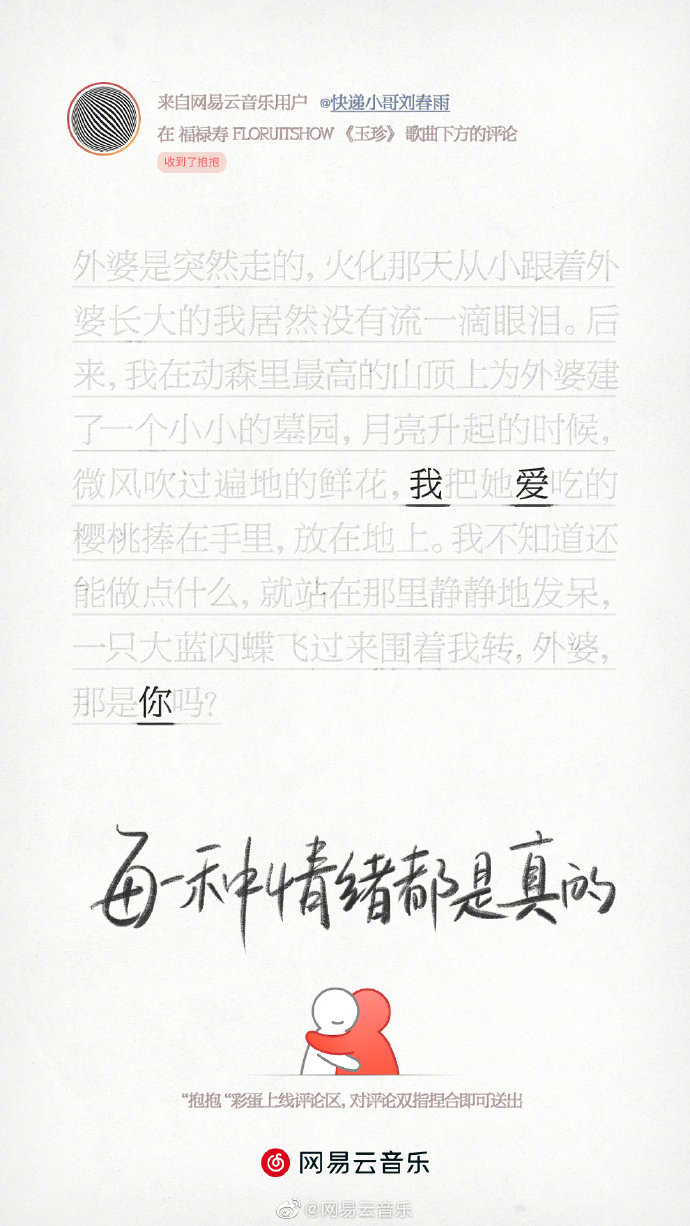 来自网易云音乐用户 @快递小哥刘春雨
在 福禄寿 FLORUITSHOW 《玉珍》 歌曲下方的评论
收到了抱抱
外婆是突然走的，火化那天从小跟着外
婆长大的我居然没有流一滴眼泪。后
来，我在动森里最高的山顶上为外婆建
了一个小小的墓园，月亮升起的时候，
微风吹过遍地的鲜花，我把她爱吃的
樱桃捧在手里，放在地上。我不知道还
能做点什么，就站在那里静静地发呆，
一只大蓝闪蝶飞过来围着我转，外婆，
那是你吗？
每一种情绪都是真的
“抱抱“彩蛋上线评论区，对评论双指捏合即可送出
网易云音乐
@网易云音乐